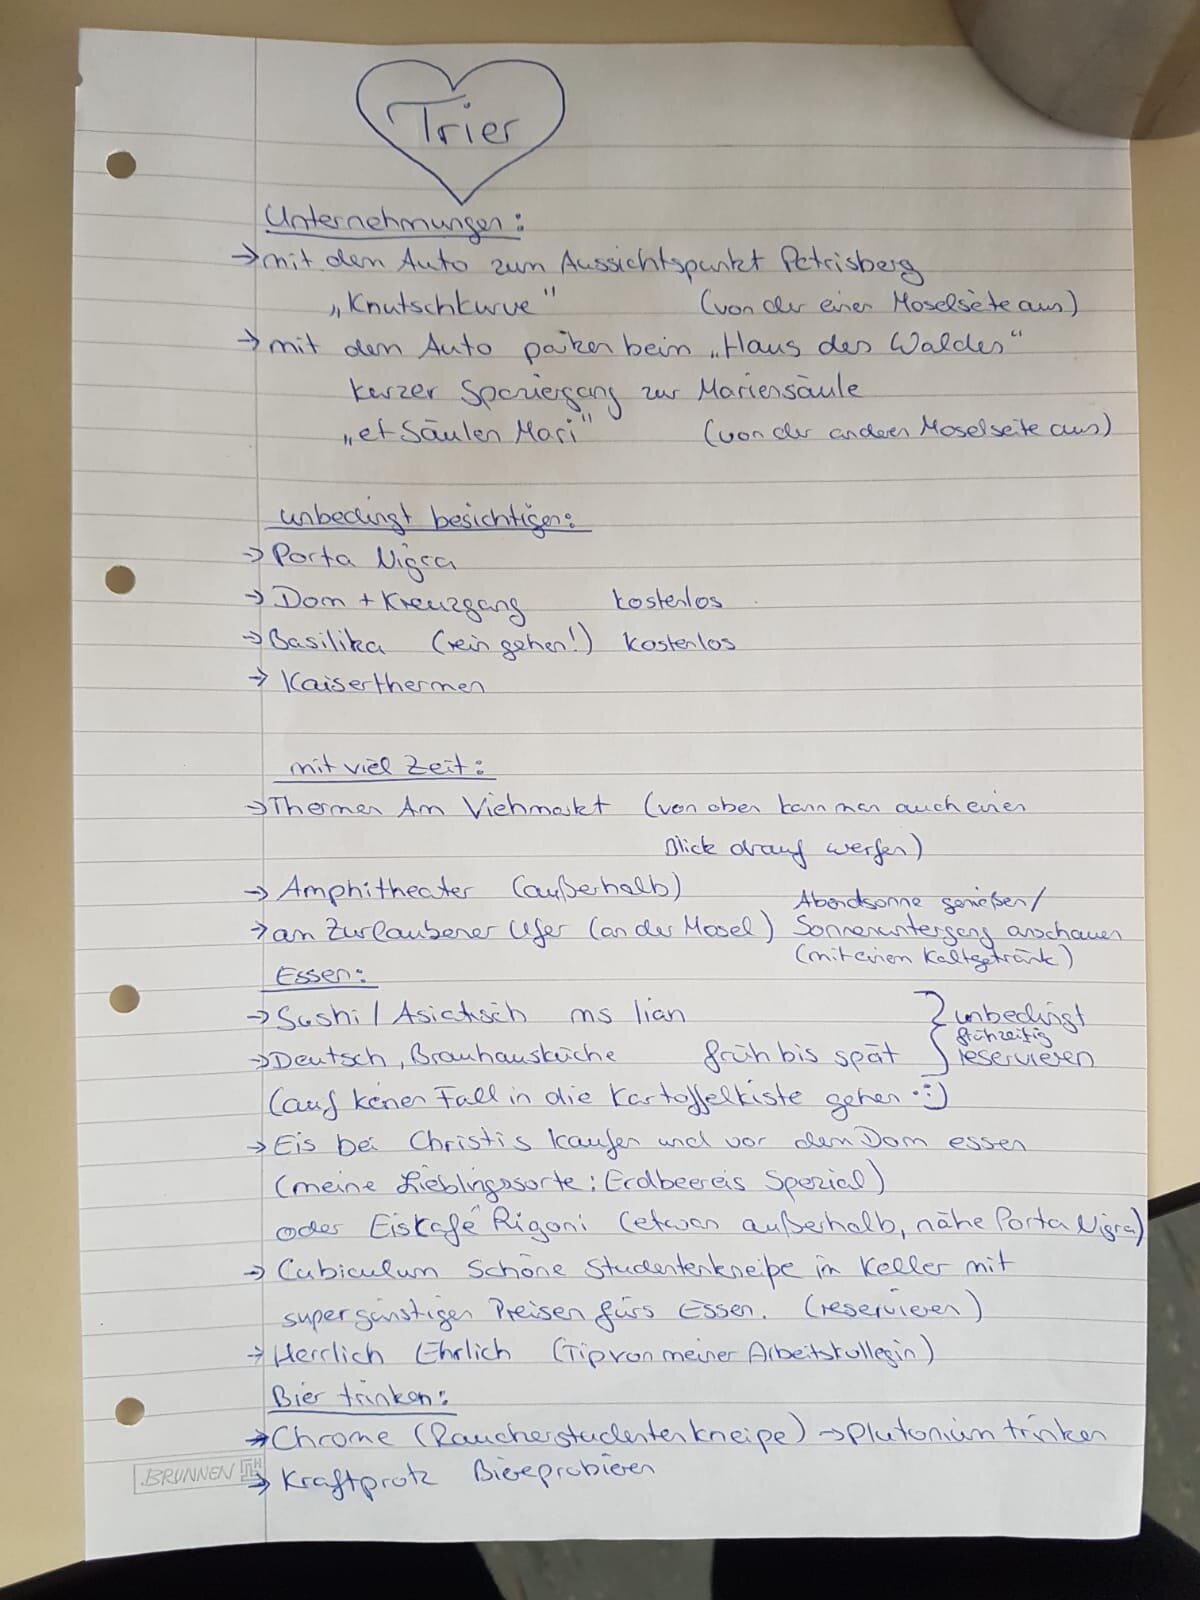 Trier
Unternehmungen:
→ mit dem Auto zum Aussichtspunkt Petrisberg
„Knutschkurve" (von der einen Moselseite aus)
→ mit dem Auto parken beim „Haus des Waldes"
kurzer Spaziergang zur Mariensäule
„et Säulen Mari" (von der anderen Moselseite aus)
unbedingt besichtigen:
→ Porta Nigra
→ Dom + Kreuzgang kostenlos
→ Basilika (rein gehen!) kostenlos
→ Kaiserthermen
mit viel Zeit:
→ Thermen Am Viehmarkt (von oben kann man auch einen
Blick drauf werfen)
→ Amphitheater (außerhalb)
→ am Zurlaubener Ufer (an der Mosel) Abendsonne genießen/
Sonnenuntergang anschauen
(mit einem Kaltgetränk)
Essen:
→ Sushi / Asiatisch ms lian
→ Deutsch, Brauhausküche früh bis spät
} unbedingt
frühzeitig
reservieren
(auf keinen Fall in die Kartoffelkiste gehen :))
→ Eis bei Christis kaufen und vor dem Dom essen
(meine Lieblingssorte: Erdbeereis Spezial)
oder Eiskafé Rigoni (etwas außerhalb, nähe Porta Nigra)
→ Cubiculum Schöne Studentenkneipe im Keller mit
super günstigen Preisen fürs Essen. (reservieren)
→ Herrlich Ehrlich (Tip von meiner Arbeitskollegin)
Bier trinken:
→ Chrome (Raucherstudentenkneipe) → Plutonium trinken
→ Kraftprotz Biereprobieren
BRUNNEN